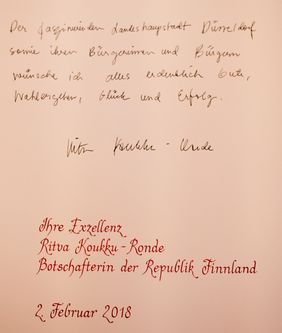 Der faszinierenden Landeshauptstadt Düsseldorf
sowie ihren Bürgerinnen und Bürgern
wünsche ich alles erdenklich Gute,
Wohlergehen, Glück und Erfolg.
Ritva Koukku-Ronde
Ihre Exzellenz
Ritva Koukku-Ronde
Botschafterin der Republik Finnland
2. Februar 2018